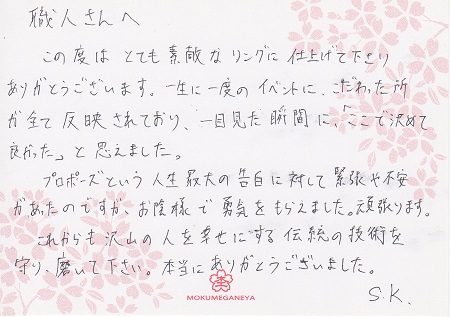 職人さんへ
この度は とても 素敵な リングに 仕上げて下さり
ありがとうございます。一生に一度の イベントに、こだわった所
が全て 反映 されており、一目見た 瞬間 に、「ここで決めて
良かった」と 思えました。
プロポーズという 人生 最大の 告白に対して 緊張や不安
があったのですが、お陰様で 勇気を もらえました。頑張ります。
これからも 沢山の 人を 幸せにする 伝統の 技術を
守り、磨いて下さい。本当に ありがとうございました。
MOKUMEGANEYA
S.K.